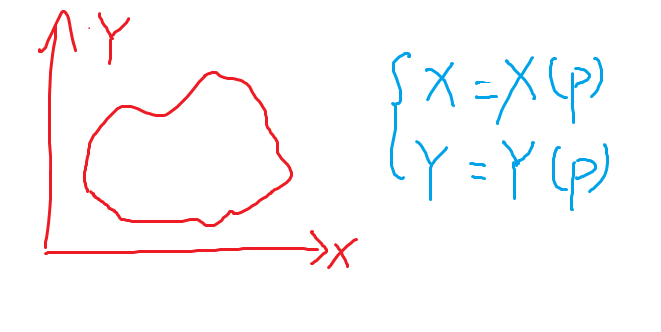 Y
X
X = X(p)
Y = Y(p)